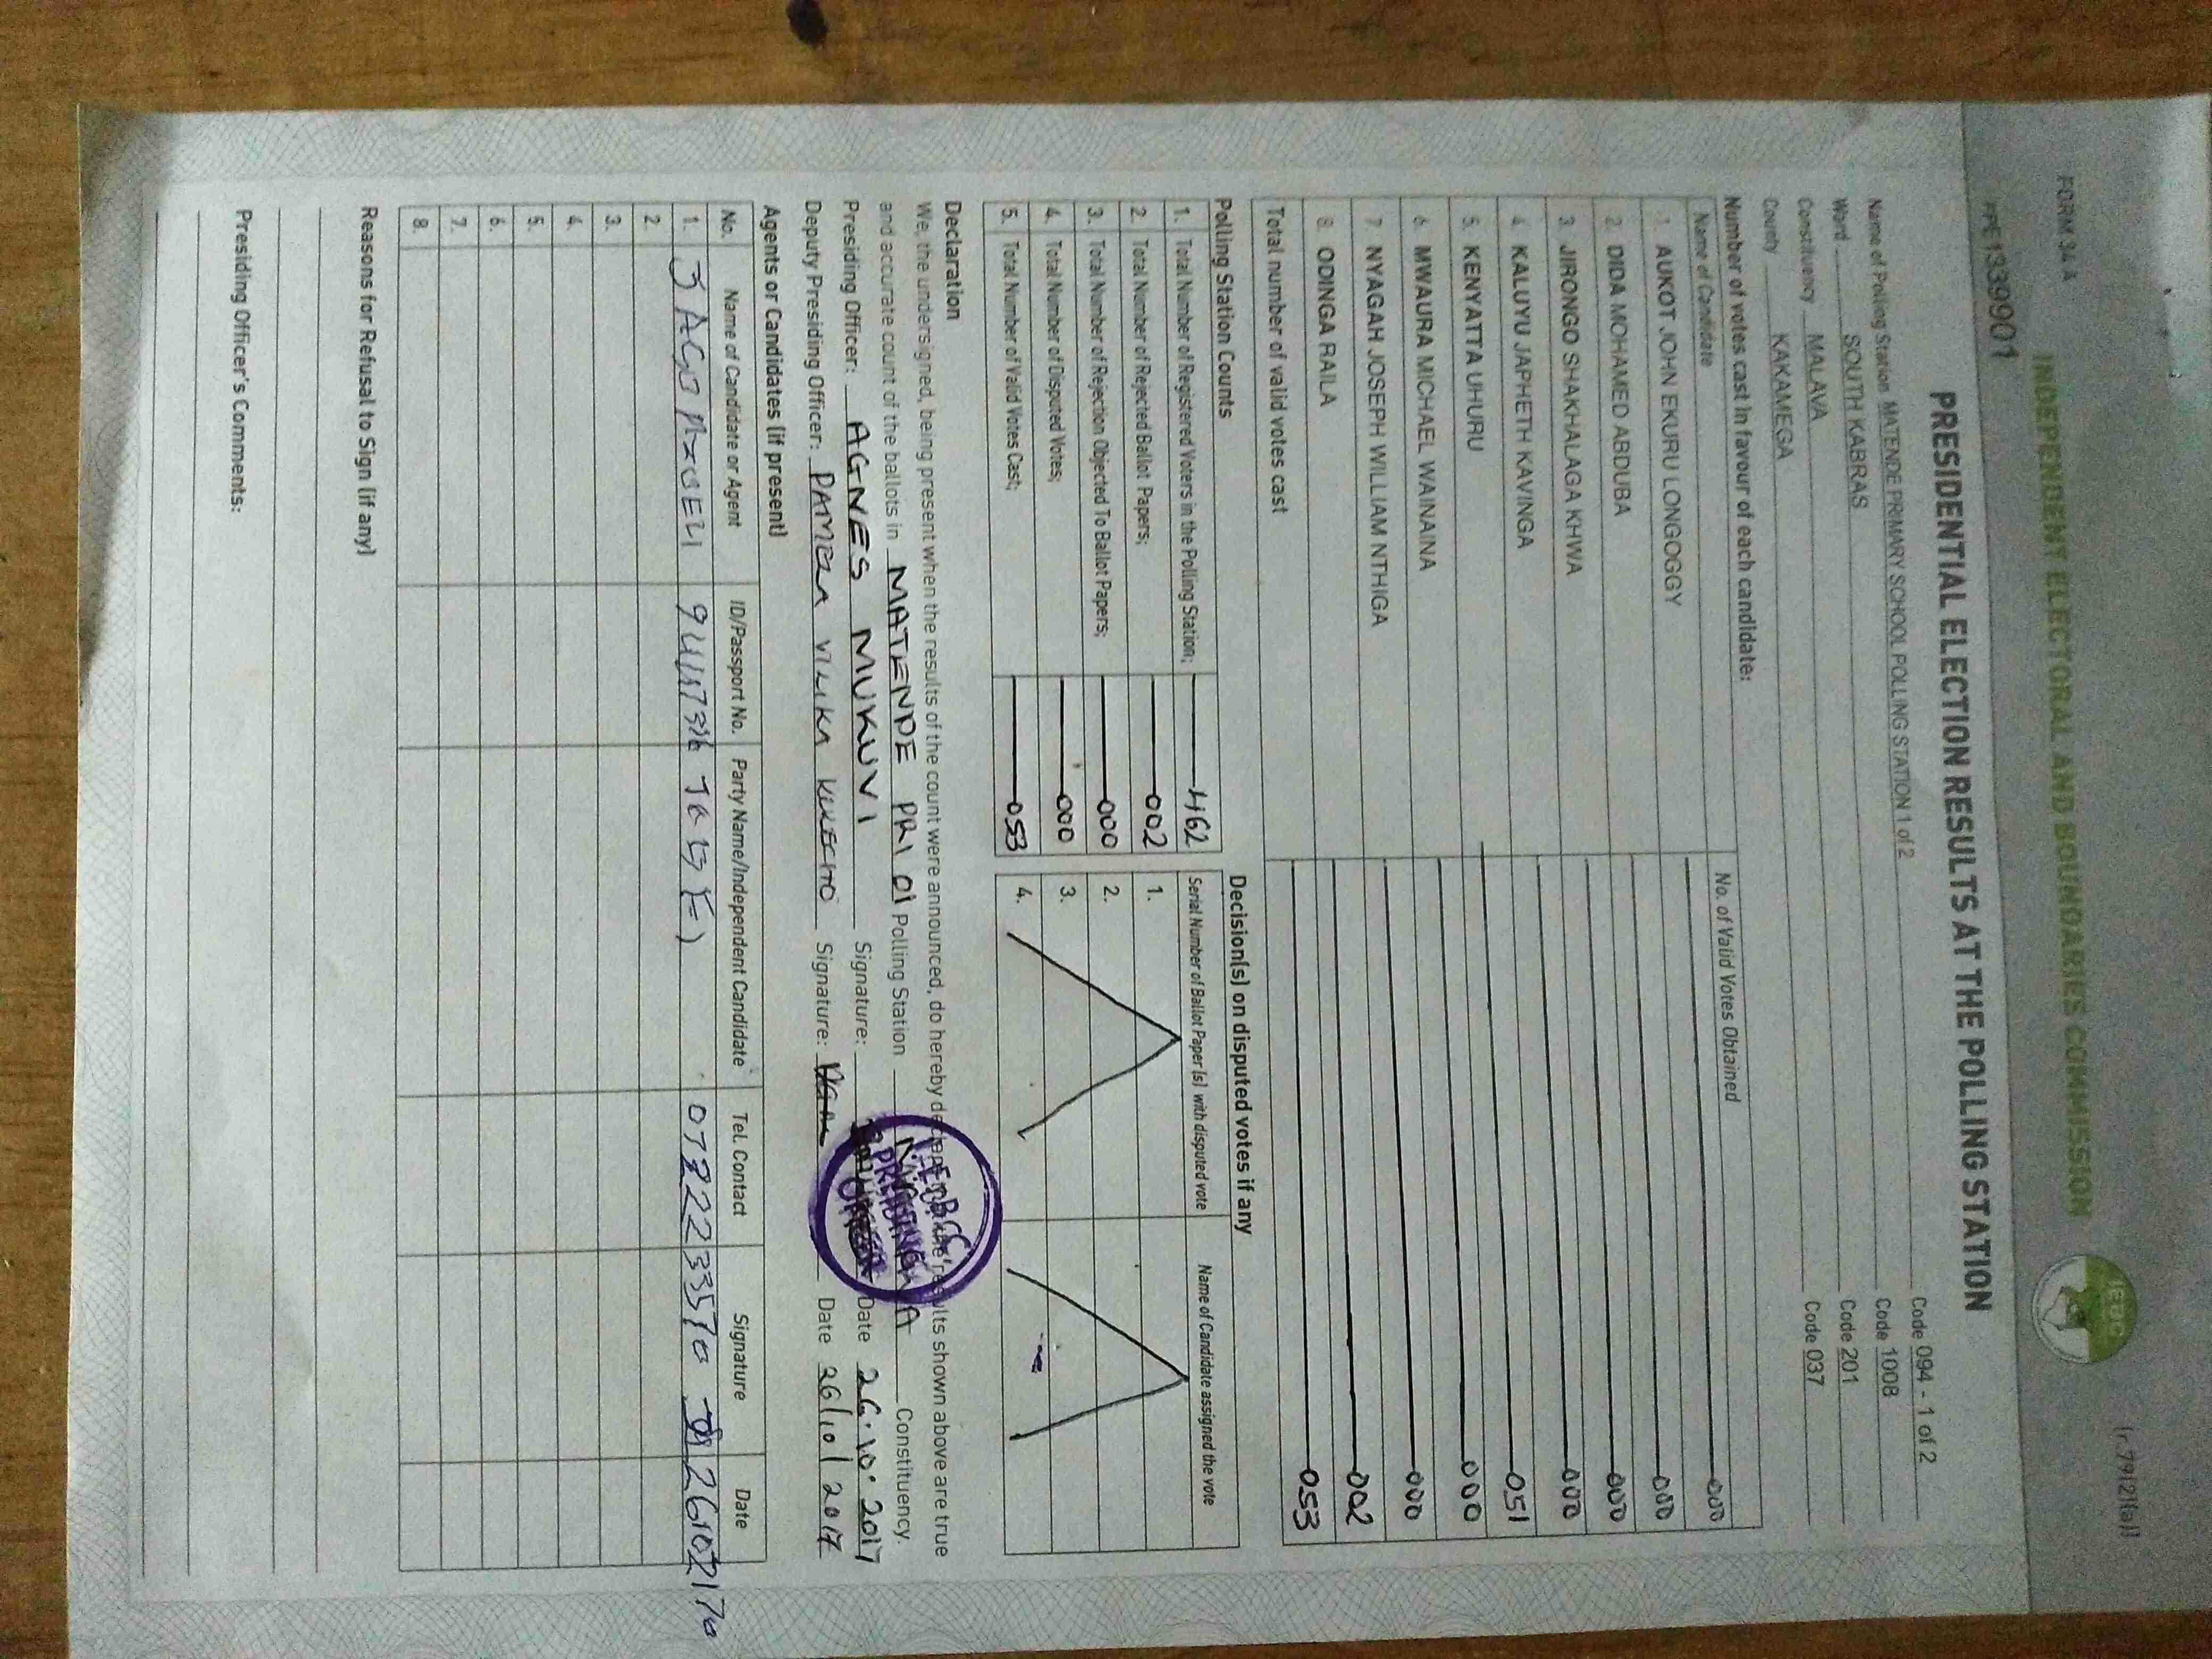 FORM 34 A
(r.79(2)(a))
INDEPENDENT ELECTORAL AND BOUNDARIES COMMISSION
IEBC
PPE 1339901
PRESIDENTIAL ELECTION RESULTS AT THE POLLING STATION
Name of Polling Station MATENDE PRIMARY SCHOOL POLLING STATION 1 of 2 Code 094 - 1 of 2
Ward SOUTH KABRAS Code 1008
Constituency MALAVA Code 201
County KAKAMEGA Code 037
Number of votes cast in favour of each candidate:
Name of Candidate No. of Valid Votes Obtained
1. AUKOT JOHN EKURU LONGOGGY 000
2. DIDA MOHAMED ABDUBA 000
3. JIRONGO SHAKHALAGA KHWA 000
4. KALUYU JAPHETH KAVINGA 000
5. KENYATTA UHURU 051
6. MWAURA MICHAEL WAINAINA 000
7. NYAGAH JOSEPH WILLIAM NTHIGA 000
8. ODINGA RAILA 002
Total number of valid votes cast 053
Polling Station Counts
1. Total Number of Registered Voters in the Polling Station; 462
2. Total Number of Rejected Ballot Papers; 002
3. Total Number of Rejection Objected To Ballot Papers; 000
4. Total Number of Disputed Votes; 000
5. Total Number of Valid Votes Cast; 053
Decision(s) on disputed votes if any
Serial Number of Ballot Paper (s) with disputed vote Name of Candidate assigned the vote
1.
2.
3.
4.
Declaration
We, the undersigned, being present when the results of the count were announced, do hereby declare that the results shown above are true
and accurate count of the ballots in MATENDE PRI 01 Polling Station Constituency.
Presiding Officer: AGNES MUKUVI Signature: Date 26.10.2017
Deputy Presiding Officer: Signature: Date 26/10/2017
Agents or Candidates (if present)
No. Name of Candidate or Agent ID/Passport No. Party Name/Independent Candidate Tel. Contact Signature Date
1. 0722233570
2.
3.
4.
5.
6.
7.
8.
Reasons for Refusal to Sign (if any)
Presiding Officer's Comments: